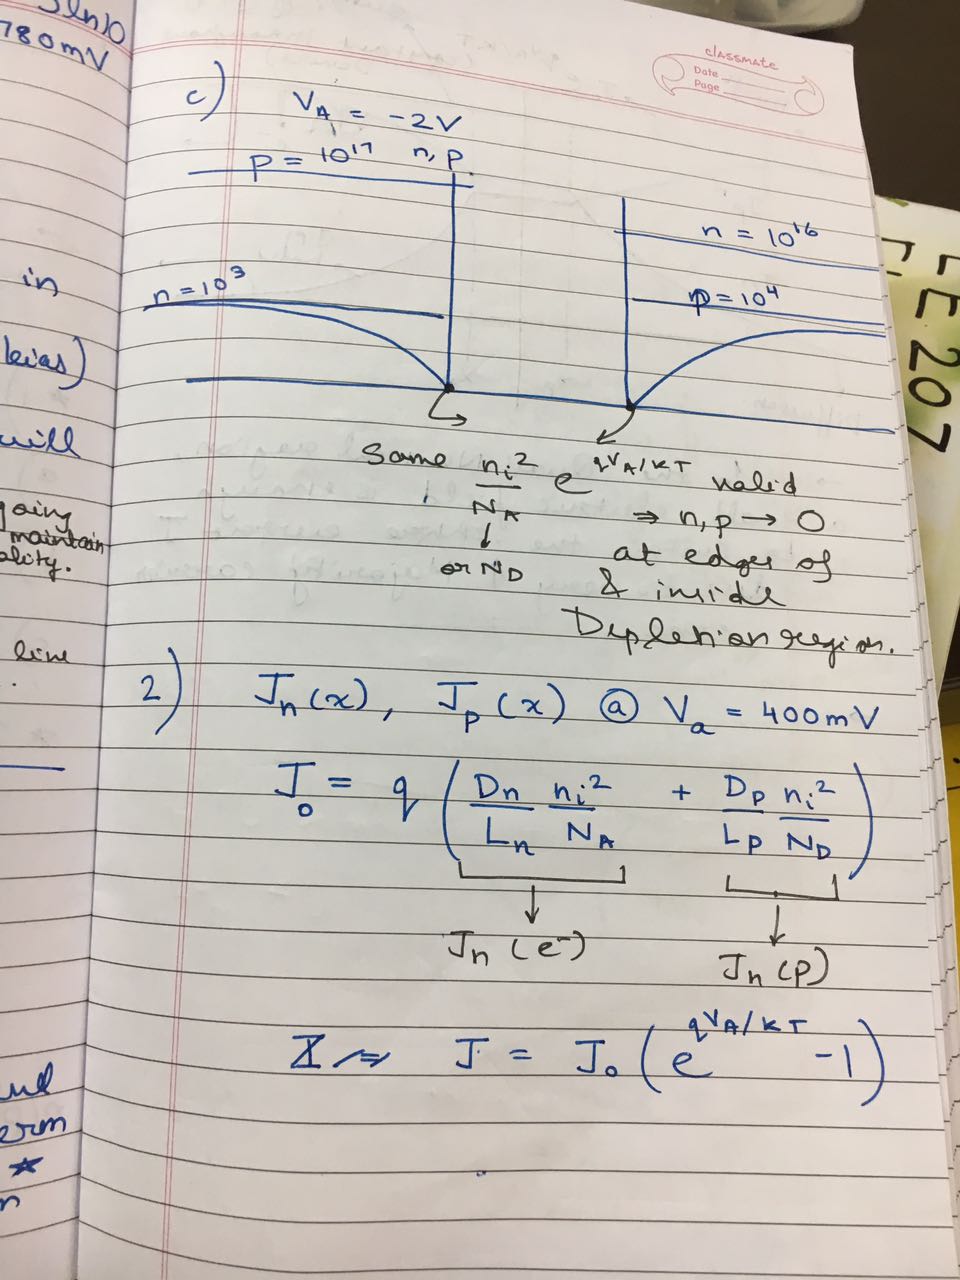 3ln10
780mV
in
bias)
will
going
maintain
ality.
line
and
erm
n
classmate
Date
Page
c)
V_A = -2V
p = 10^17 n, p
n = 10^16
n = 10^3
p = 10^4
Same n_i^2/N_A e^(qV_A/KT) valid
or N_D
⇒ n, p → 0
at edges of
& inside
Depletion region.
2) J_n(x), J_p(x) @ V_a = 400mV
J_0 = q (D_n/L_n n_i^2/N_A + D_p/L_p n_i^2/N_D)
J_n (e^-)
J_n (p)
J = J_0 (e^(qV_A/KT) -1)
EE 207